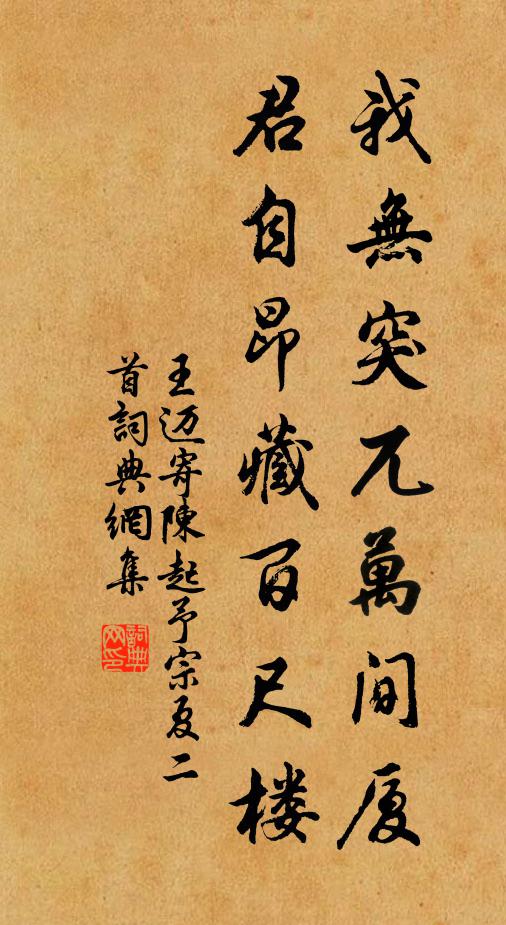 我無突兀萬間厦
君自昂藏百尺楼
王迈寄陳起予宗夏二
首詞典網集
詞典
网印